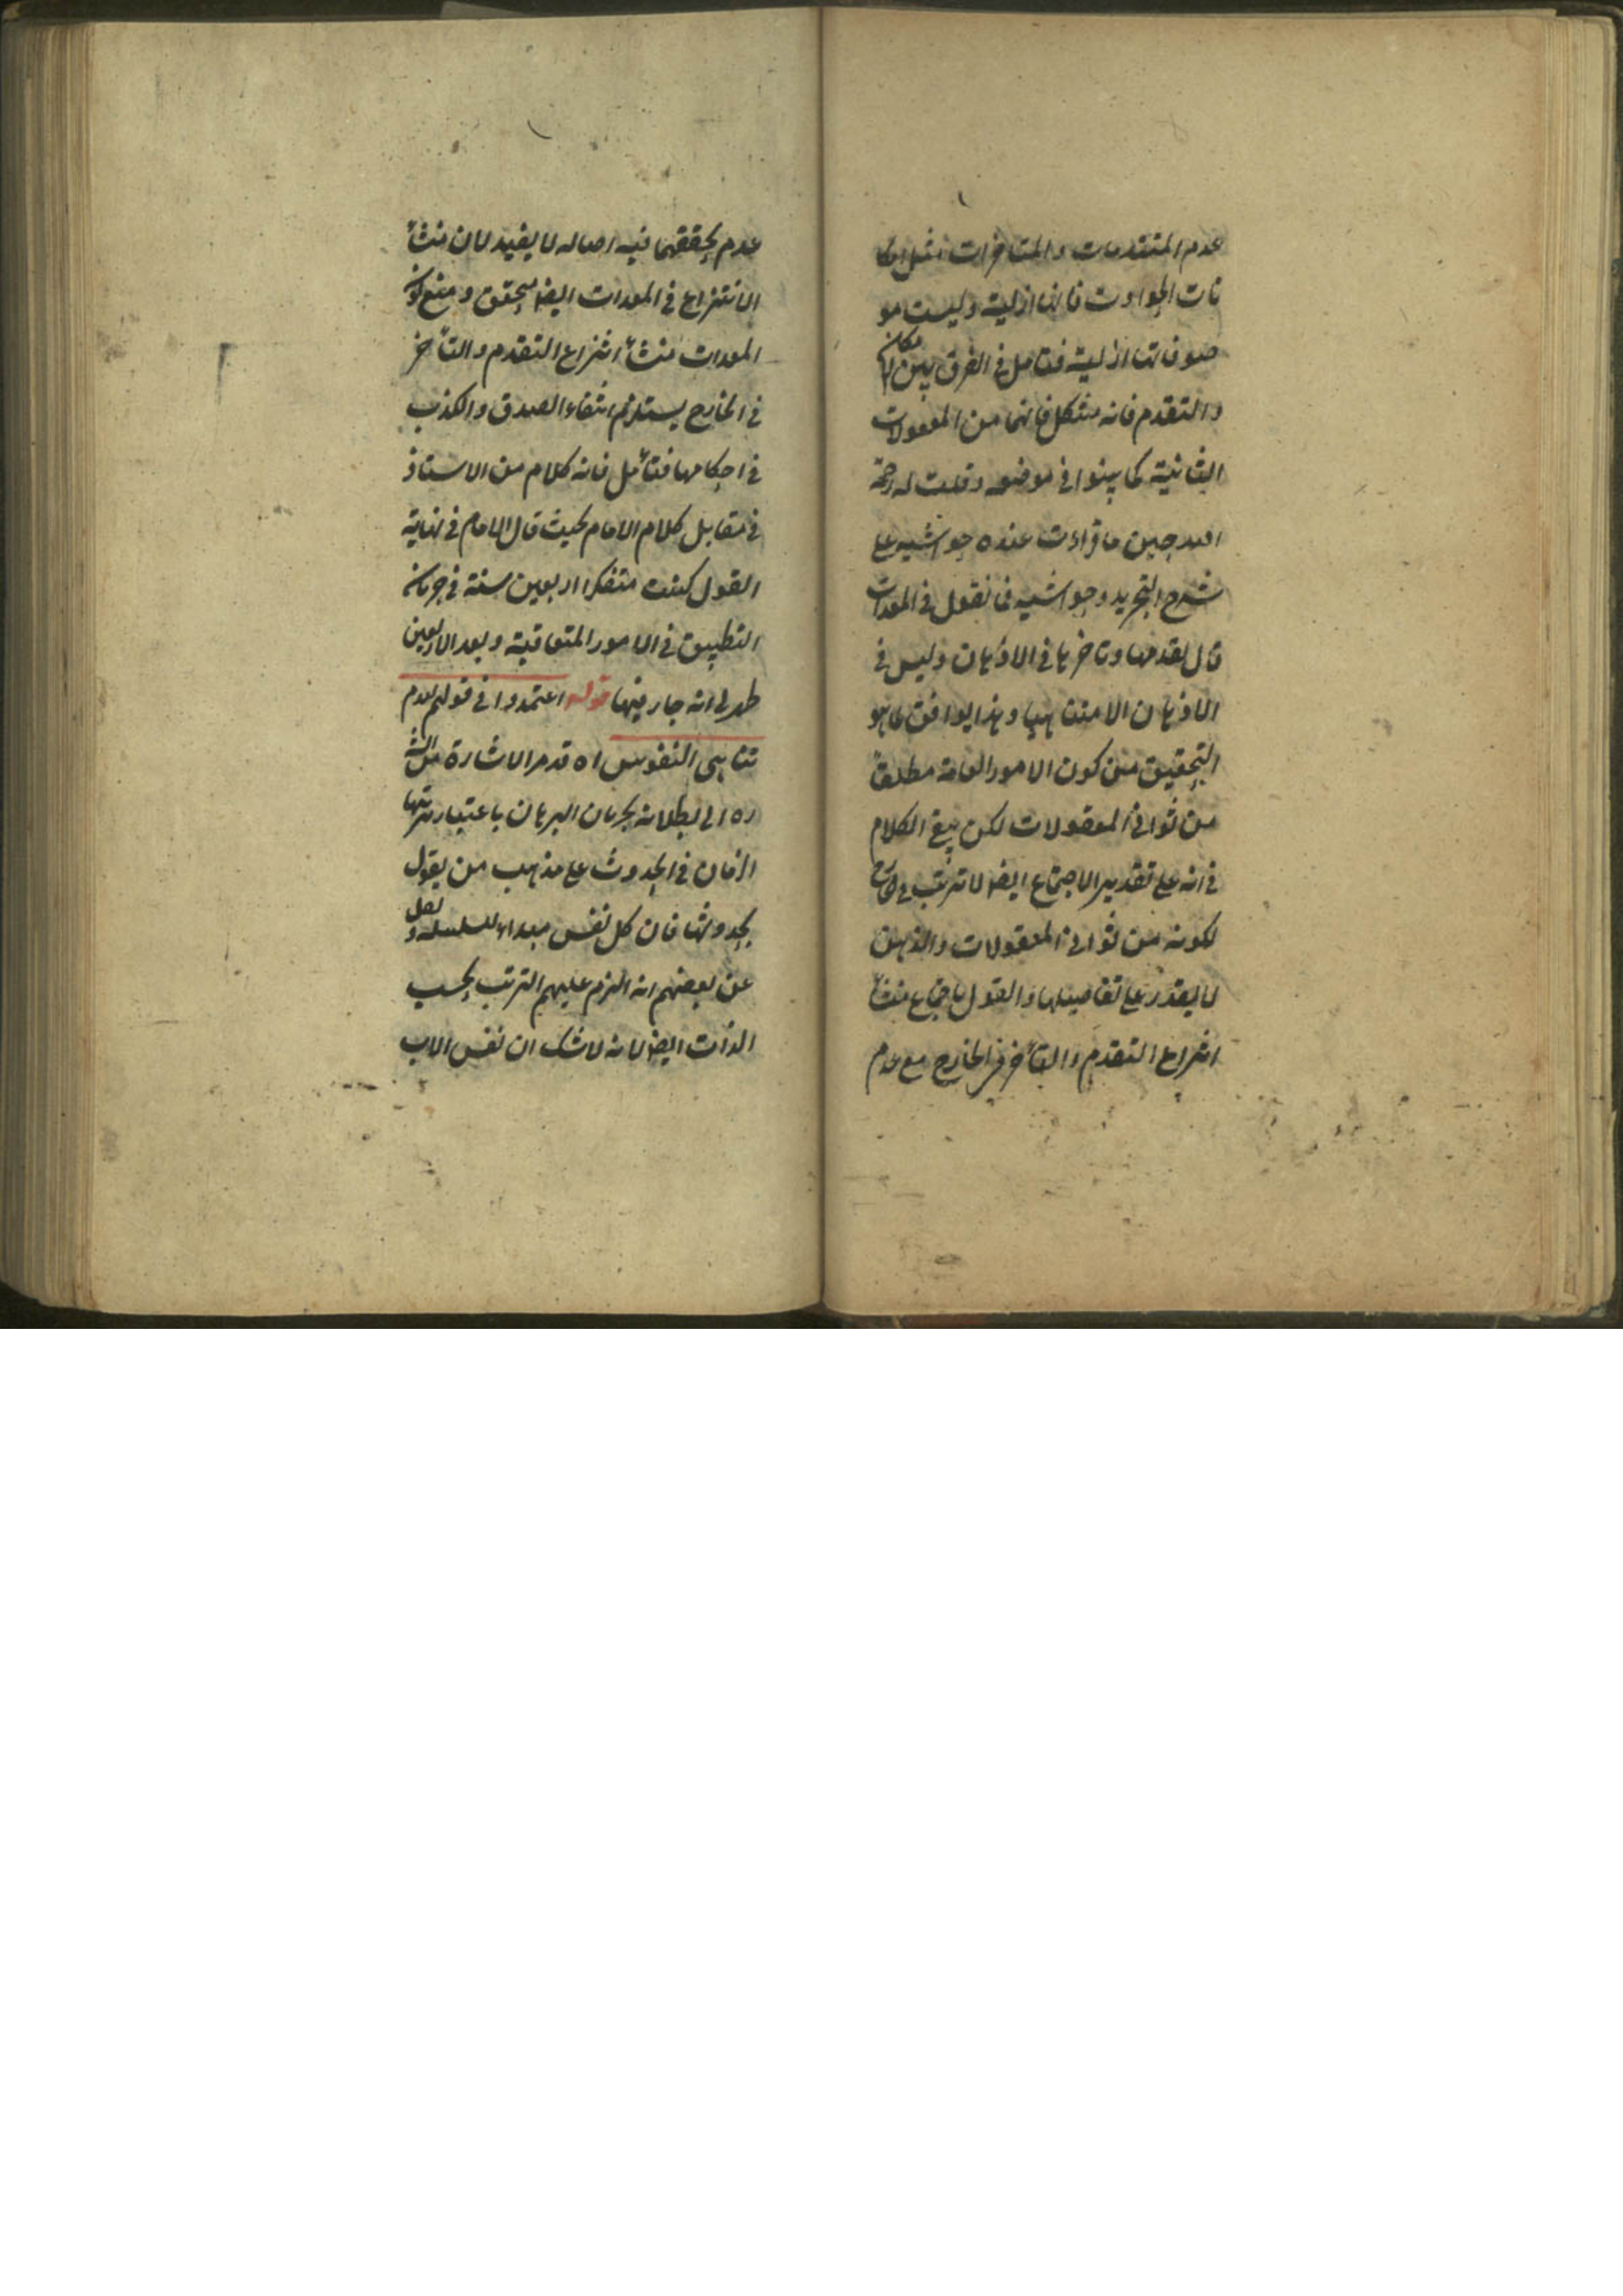 عدم المتقدمات والمتاخرات مثل امكا
نات الحوادث فانها ازلية وليست مو
صوفاتها ازلية فتامل في الفرق بين الامكان
والتقدم فانه مشكل فانهما من المعقولات
الثانية كما بينوا في موضعه وقلت له رحمة
الله حين ما قراءت عنده حواشيه على
شرح التجريد وحواشيه فما نقول في المعدات
قال تقدمها وتاخرها في الاذهان وليس في
الاذهان الا متناهيا وهذا يوافق لما هو
التحقيق من كون الامور العامة مطلقا
من ثواني المعقولات لكن يبقى الكلام
في انه على تقدير الاجتماع ايضا لا ترتب في الخارج
لكونه من ثواني المعقولات والذهن
لا يقدر على تفاصيلها والقول باجتماع منشأ
انتزاع التقدم والتأخر في الخارج مع عدم
عدم تحققهما فيه اصالة لا يفيد لان منشأ
الانتزاع في المعدات ايضا متحقق ومنع كون
المعدات منشأ انتزاع التقدم والتأخر
في الخارج يستلزم انتفاء الصدق والكذب
في احكامها فتأمل فانه كلام من الاستاذ
في مقابل كلام الامام بحيث قال الامام في نهاية
القول كنت متفكرا اربعين سنة في جريان
التطبيق في الامور المتعاقبة وبعد الاربعين
ظهر لي انه جار فيها قوله اعتمدوا في قولهم بعدم
تناهي النفوس اه قد مر الاشارة من الش
ره الى بطلانه بجريان البرهان باعتبار ترتبها
الزمان في الحدوث على مذهب من يقول
بحدوثها فان كل نفس مبداء لسلسلة ونقل
عن بعضهم انه الزم عليهم الترتب بحسب
الذات ايضا لانه لا شك ان نفس الاب